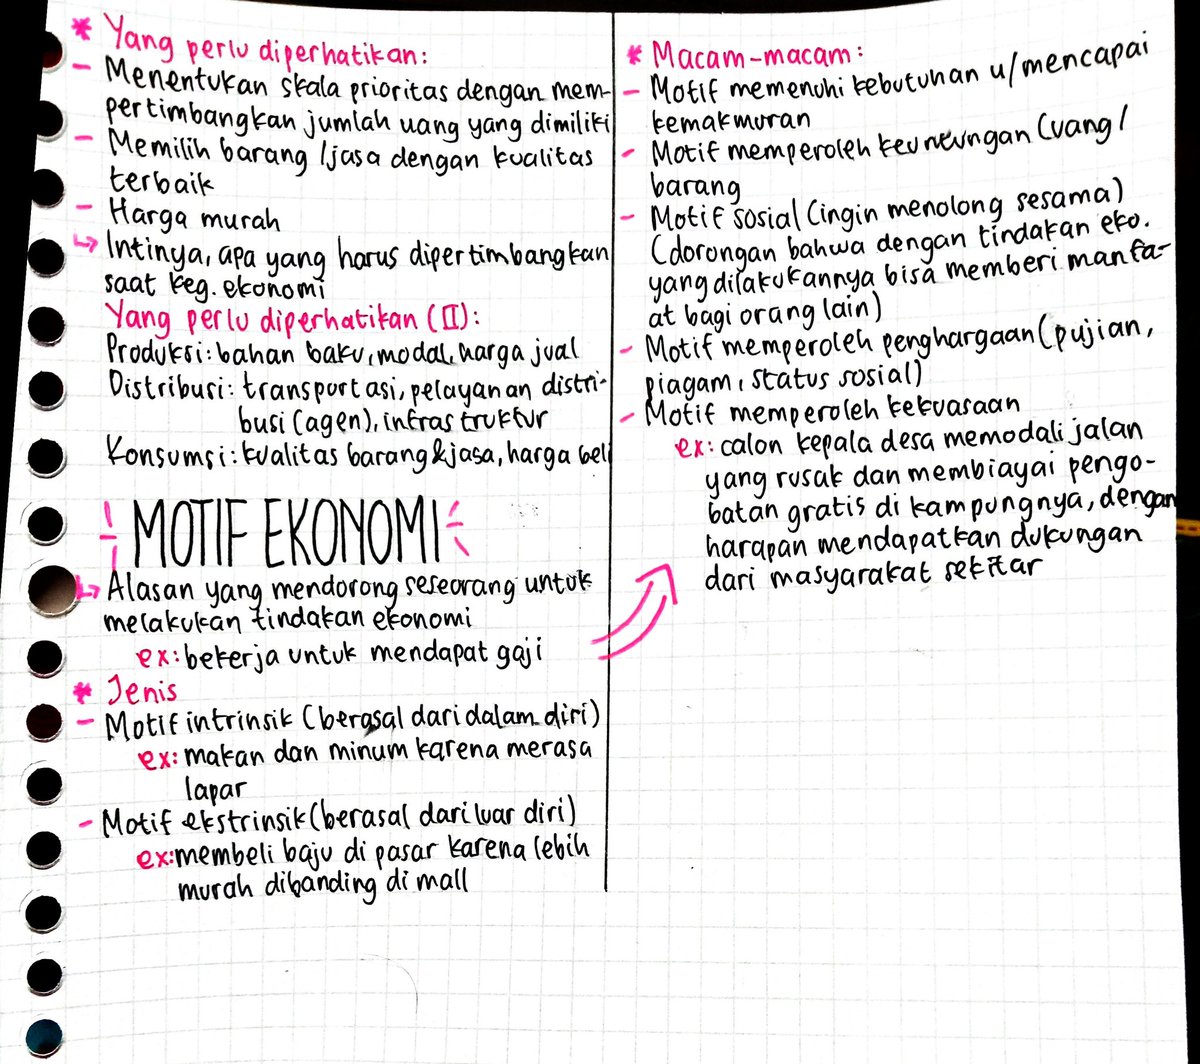 * Yang perlu diperhatikan:
- Menentukan skala prioritas dengan mem-
pertimbangkan jumlah uang yang dimiliki
- Memilih barang /jasa dengan kualitas
terbaik
- Harga murah
↳ Intinya, apa yang harus dipertimbangkan
saat keg. ekonomi
Yang perlu diperhatikan (II):
Produksi: bahan baku, modal, harga jual
Distribusi: transportasi, pelayanan distri-
busi (agen), infrastruktur
Konsumsi: kualitas barang & jasa, harga beli
MOTIF EKONOMI
↳ Alasan yang mendorong seseorang untuk
melakukan tindakan ekonomi
ex: bekerja untuk mendapat gaji
* Jenis
- Motif intrinsik (berasal dari dalam diri)
ex: makan dan minum karena merasa
lapar
- Motif ekstrinsik (berasal dari luar diri)
ex: membeli baju di pasar karena lebih
murah dibanding di mall
* Macam-macam:
- Motif memenuhi kebutuhan u/mencapai
kemakmuran
- Motif memperoleh keuntungan (uang /
barang
- Motif sosial (ingin menolong sesama)
(dorongan bahwa dengan tindakan eko.
yang dilakukannya bisa memberi manfa-
at bagi orang lain)
- Motif memperoleh penghargaan (pujian,
piagam, status sosial)
- Motif memperoleh kekuasaan
ex: calon kepala desa memodali jalan
yang rusak dan membiayai pengo-
batan gratis di kampungnya, dengan
harapan mendapatkan dukungan
dari masyarakat sekitar